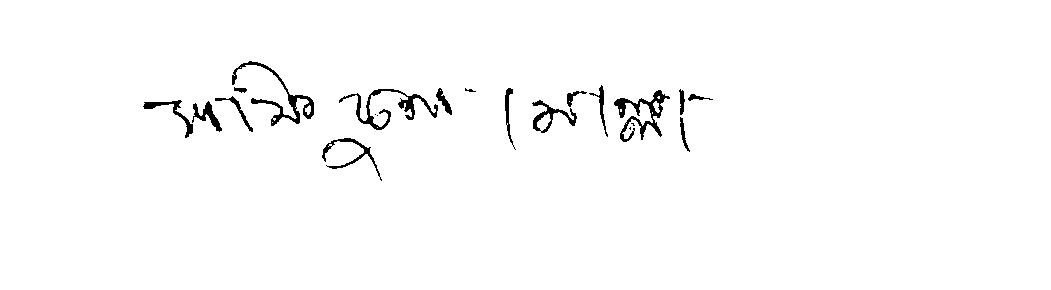 আমিনুল মোল্লা